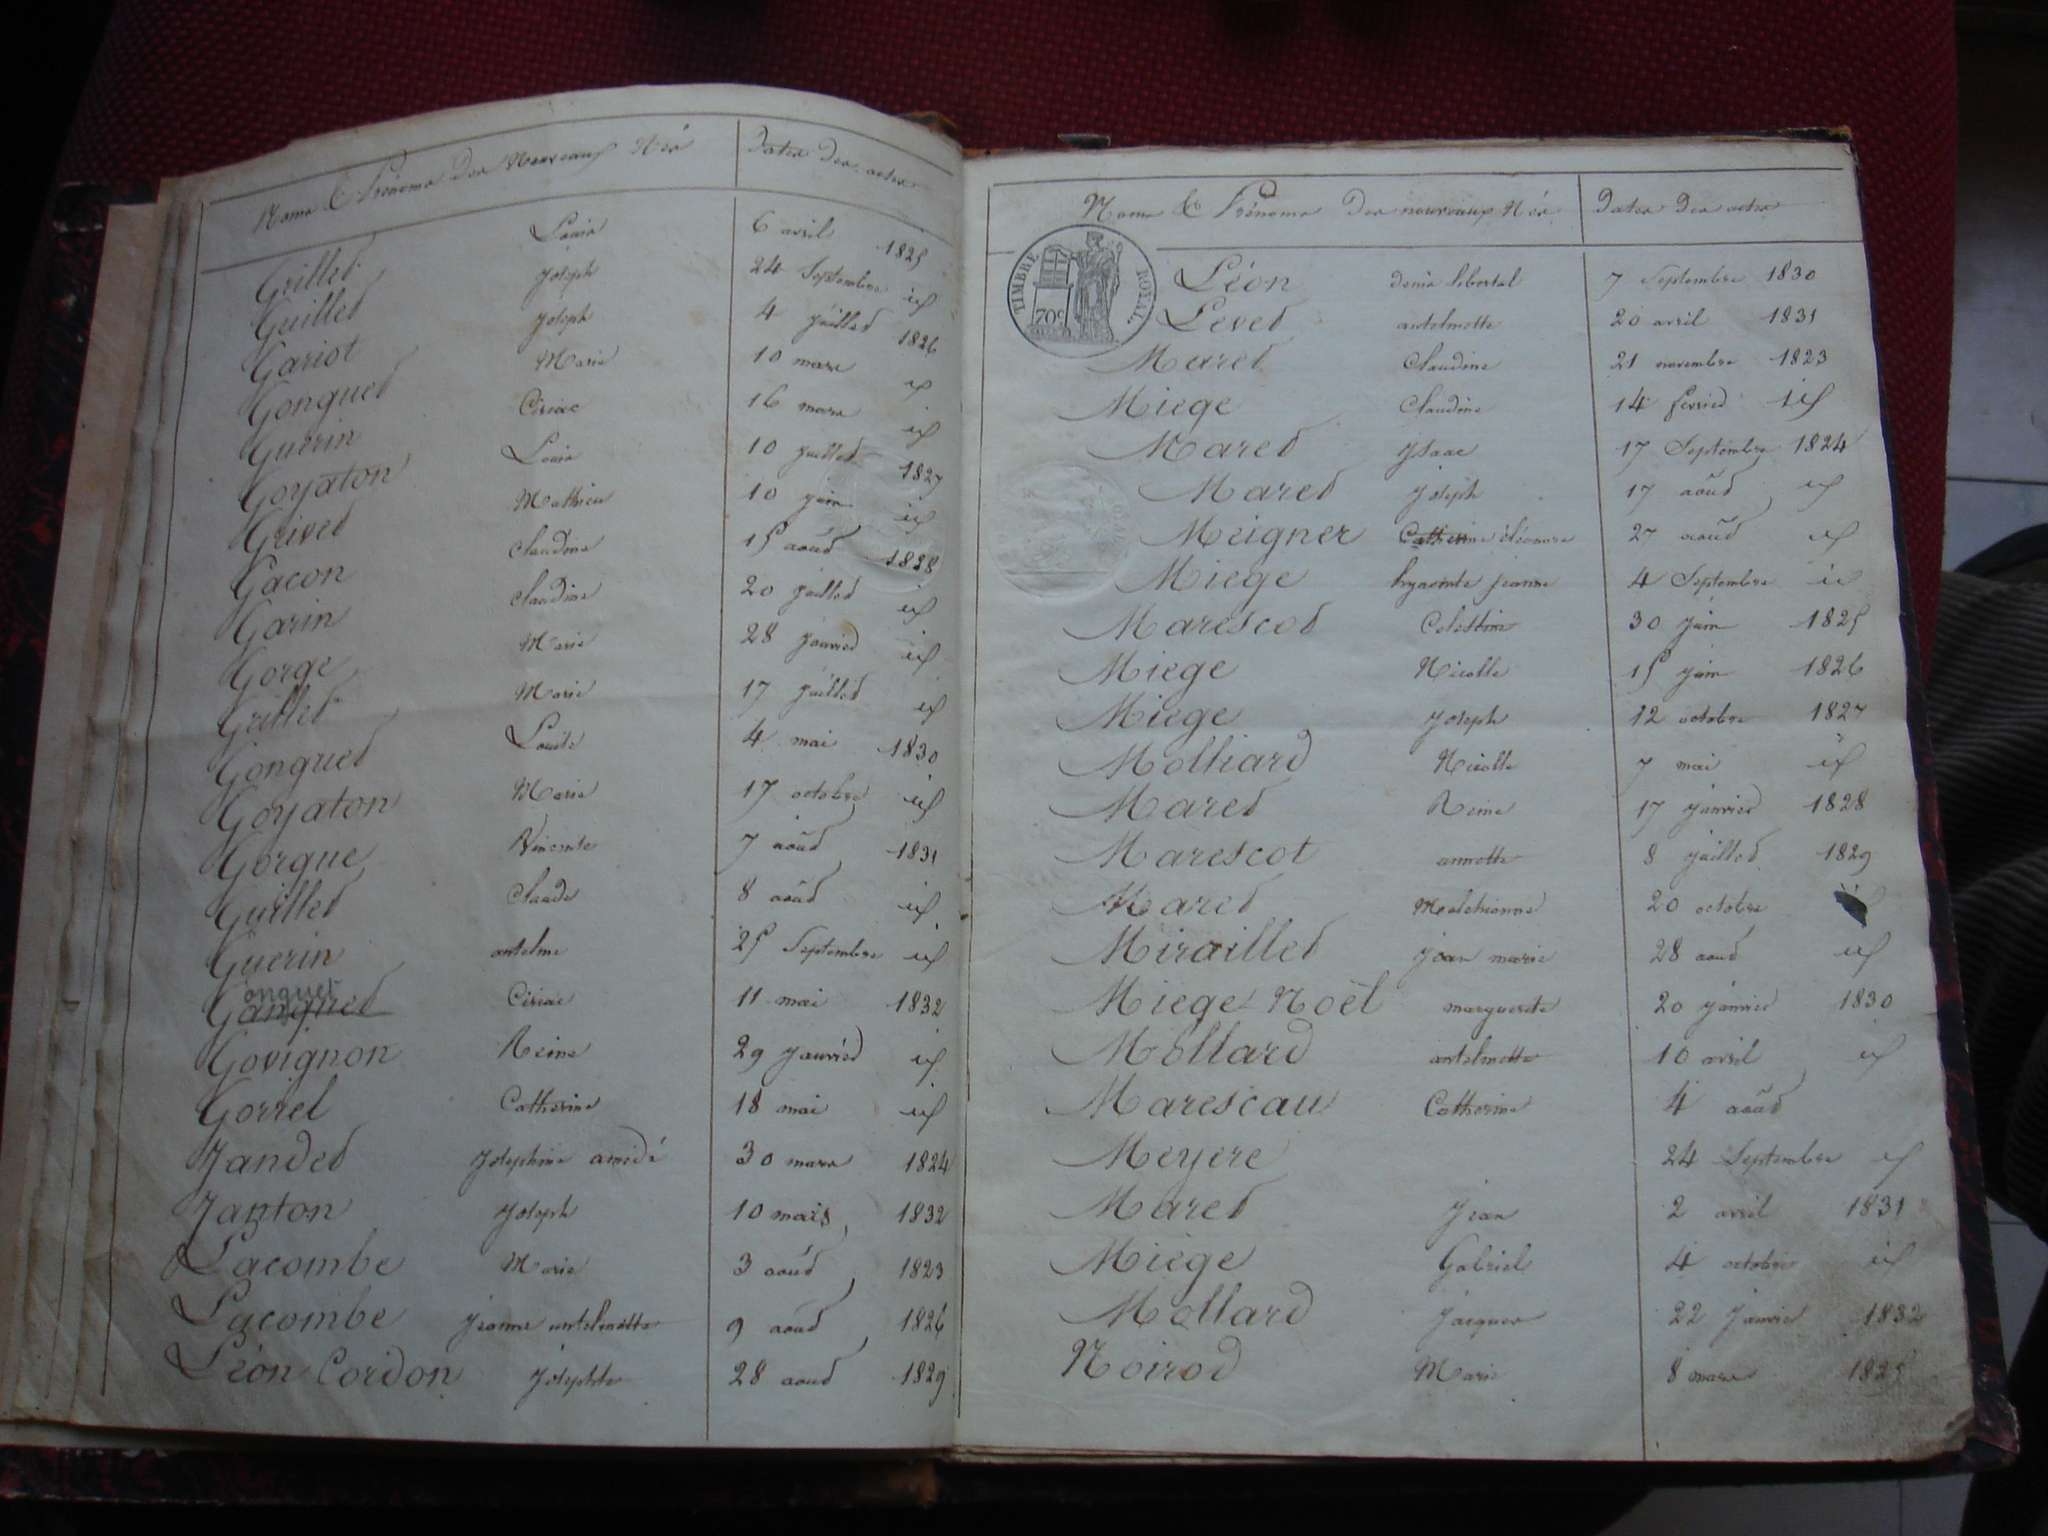 Noms & Prénoms des Nouveaux Nés Dates des actes
Grillet Louis 6 avril 1825
Guillet Joseph 24 Septembre id
Gariot Joseph 4 juillet 1826
Gonguet Marie 10 mars id
Guerin Ciriac 16 mars id
Goyaton Louis 10 juillet 1827
Grivet Mathieu 10 juin id
Gacon Claudine 15 août 1828
Garin Claudine 20 juillet id
Gorge Marie 28 janvier id
Grillet Marie 17 juillet id
Gonguet Louise 4 mai 1830
Goyaton Marie 17 octobre id
Gorgue Vincente 7 août 1831
Guillet Claude 8 août id
Guerin antelme 25 Septembre id
onguet
Ganguet Ciriac 11 mai 1832
Govignon Reine 29 janvier id
Gorrel Catherine 18 mai id
Jandet Josephine amedé 30 mars 1824
Janton Joseph 10 mars 1832
Lacombe Marie 3 août 1823
Lacombe Jeanne antelmette 9 août 1826
Léon Cordon Josephte 28 aout 1829
Noms & Prénoms des nouveaux Nés Dates des actes
TIMBRE ROYAL
70c
Léon denis libertal 7 Septembre 1830
Levet antelmette 20 avril 1831
Maret Claudine 21 novembre 1823
Miege Claudine 14 fevrier id
Maret Isaac 17 Septembre 1824
Maret Joseph 17 août id
Meigner Catherine éléonore 27 août id
Miege hyacinte jeanne 4 Septembre id
Marescot Celestine 30 juin 1825
Miege Nicolle 15 juin 1826
Miege Joseph 12 octobre 1827
Molliard Nicolle 7 mai id
Maret Reine 17 janvier 1828
Marescot annette 8 juillet 1829
Maret Melchionne 20 octobre
Miraillet jean marie 28 aout id
Miege Noël marguerite 20 janvier 1830
Mollard antelmette 10 avril id
Marescau Catherine 4 août
Meyere 24 Septembre id
Maret Jean 2 avril 1831
Miège Gabriel 4 octobre id
Mollard Jacques 22 Janvier 1832
Noirod Marie 8 mars 1825